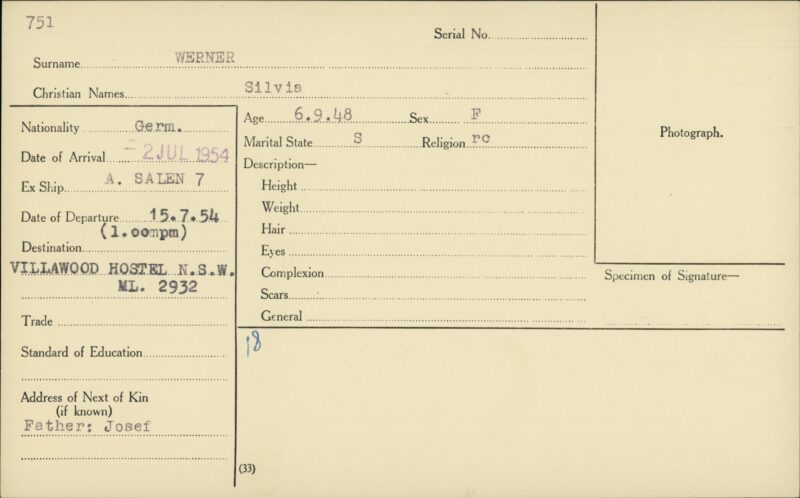 751
Serial No.
Surname WERNER
Christian Names Silvia
Nationality Germ.
Date of Arrival - 2 JUL 1954
Ex Ship A. SALEN 7
Date of Departure 15.7.54
(1.00mpm)
Destination
VILLAWOOD HOSTEL N.S.W.
ML. 2932
Trade
Standard of Education
Address of Next of Kin
(if known)
Father: Josef
Age 6.9.48 Sex F
Marital State S Religion rc
Description—
Height
Weight
Hair
Eyes
Complexion
Scars
General
18
(33)
Photograph.
Specimen of Signature—